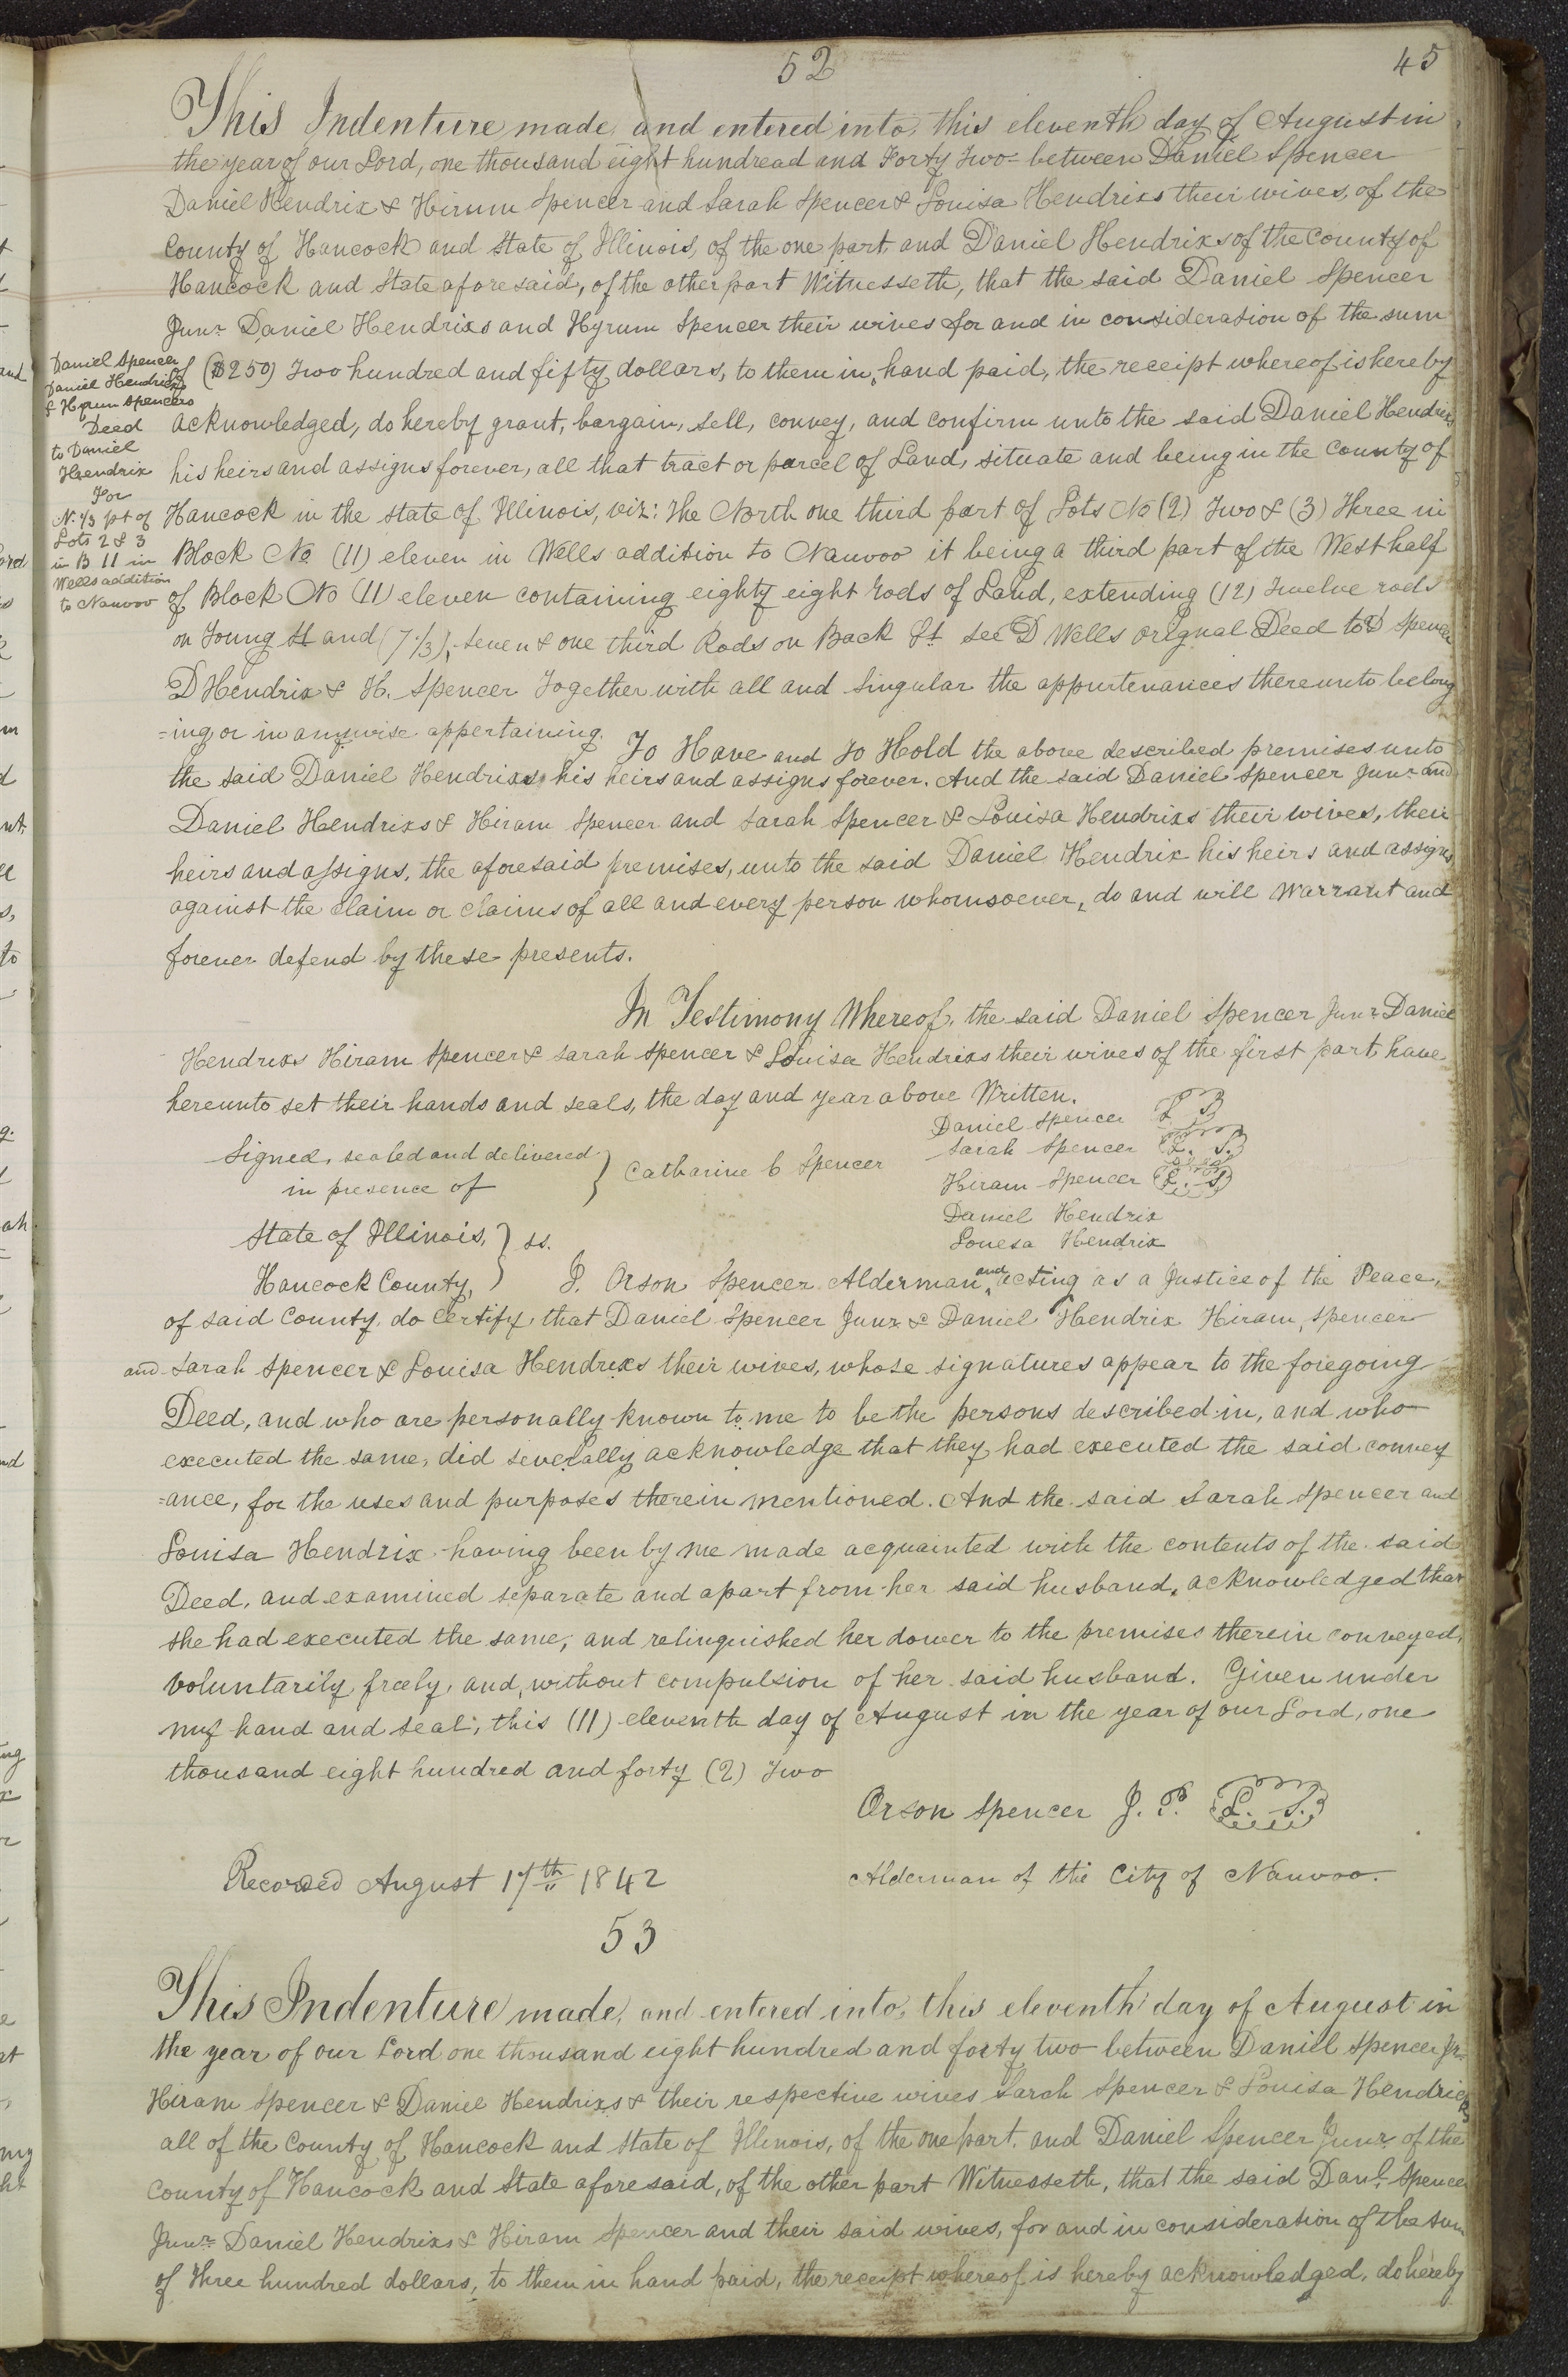 52
45
This Indenture made, and entered into, this eleventh day of August in
the year of our Lord, one thousand eight hundread and Forty Two between Daniel Spencer
Daniel Hendrix & Hirum Spencer and Sarah Spencer & Louisa Hendrixs their wives, of the
County of Hancock and State of Illinois, of the one part, and Daniel Hendrixs of the County of
Hancock and State aforesaid, of the other part Witnesseth, that the said Daniel Spencer
Junr Daniel Hendrixs and Hyrum Spencer their wives for and in consideration of the sum
of ($250) Two hundred and fifty dollars, to them in hand paid, the receipt whereof is hereby
acknowledged, do hereby grant, bargain, sell, convey, and confirm unto the said Daniel Hendrix
his heirs and assigns forever, all that tract or parcel of Land, situate and being in the County of
Hancock in the state of Illinois, viz: The North one third part of Lots No (2) Two & (3) Three in
Block No (11) eleven in Wells addition to Nauvoo it being a third part of the West half
of Block No (11) eleven containing eighty eight rods of Land, extending (12) Twelve rods
on Young St and (7 1/3), seven & one third Rods on Back St see D Wells orignal Deed to D Spencer
D Hendrix & H. Spencer Together with all and Singular the appurtenances thereunto belong
=ing, or in anywise appertaining. To Have and To Hold the above described premises unto
the said Daniel Hendrixs, his heirs and assigns forever. And the said Daniel Spencer Junr and
Daniel Hendrixs & Hiram Spencer and Sarah Spencer & Louisa Hendrixs their wives, their
heirs and assigns, the aforesaid premises, unto the said Daniel Hendrix his heirs and assigns
against the claim or claims of all and every person whomsoever, do and will Warrant and
forever defend by these presents.
In Testimony Whereof, the said Daniel Spencer Junr Daniel
Hendrixs Hiram Spencer & Sarah Spencer & Louisa Hendrixs their wives of the first part have
hereunto set their hands and seals, the day and year above Written.
Daniel Spencer
Daniel Hendrix
& Hyrum Spencers
Deed
to Daniel
Hendrix
For
N. 1/3 pt of
Lots 2 & 3
in B 11 in
Wells addition
to Nauvoo
Signed, sealed and delivered
in presence of } Catharine C Spencer
Daniel Spencer L S
Sarah Spencer L. S.
Hiram Spencer L. S
Daniel Hendrix
Louesa Hendrix
State of Illinois, } ss.
Hancock County, } I. Orson Spencer Alderman and acting as a Justice of the Peace,
of said County, do certify, that Daniel Spencer Junr & Daniel Hendrix Hiram, Spencer
and Sarah Spencer & Louisa Hendrixs their wives, whose signatures appear to the foregoing
Deed, and who are personally known to me to be the persons described in, and who
executed the same, did severally acknowledge that they had executed the said convey
=ance, for the uses and purposes therein mentioned. And the said Sarah Spencer and
Louisa Hendrix having been by me made acquainted with the contents of the said
Deed, and examined separate and apart from her said husband, acknowledged that
she had executed the same, and relinquished her dower to the premises therein conveyed,
voluntarily, freely, and, without compulsion of her said husband. Given under
my hand and seal, this (11) eleventh day of August in the year of our Lord, one
thousand eight hundred and forty (2) Two
Orson Spencer J. P. L. S.
Recorded August 17th 1842
Alderman of the City of Nauvoo.
53
This Indenture made, and entered into, this eleventh day of August in
the year of our Lord one thousand eight hundred and forty two between Daniel Spencer Jr
Hiram Spencer & Daniel Hendrixs & their respective wives Sarah Spencer & Louisa Hendricks
all of the County of Hancock and State of Illinois, of the one part, and Daniel Spencer Junr of the
County of Hancock and State aforesaid, of the other part Witnesseth, that the said Danl. Spencer
Junr Daniel Hendrixs & Hiram Spencer and their said wives, for and in consideration of the sum
of Three hundred dollars, to them in hand paid, the receipt whereof is hereby acknowledged, do hereby